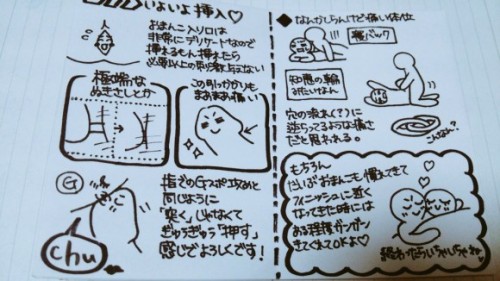 いよいよ挿入♡
おまんこ入り口は
非常にデリケートなので
挿れるもん挿れたら
必要以上の刺激は
極端な
ぬきさしとか
この引っかかりも
まあまあ痛い
G
指でのGスポ攻めと
同じように
「突く」じゃなくて
ぎゅうぎゅう「押す」
感じでよろしくです!
chu
◆なんかしらんけど痛い体位
寝バック
知恵の輪
みたいなもん
穴の流れ(?)に
逆らってるような痛さ
だと思われる。
こんなん?
もちろん
だいぶおまんこも慣れてきて
フィニッシュに近く
なってきた時には
ある程度ガンガン
きてくれてOKよ♡
終わったらいちゃいちゃね